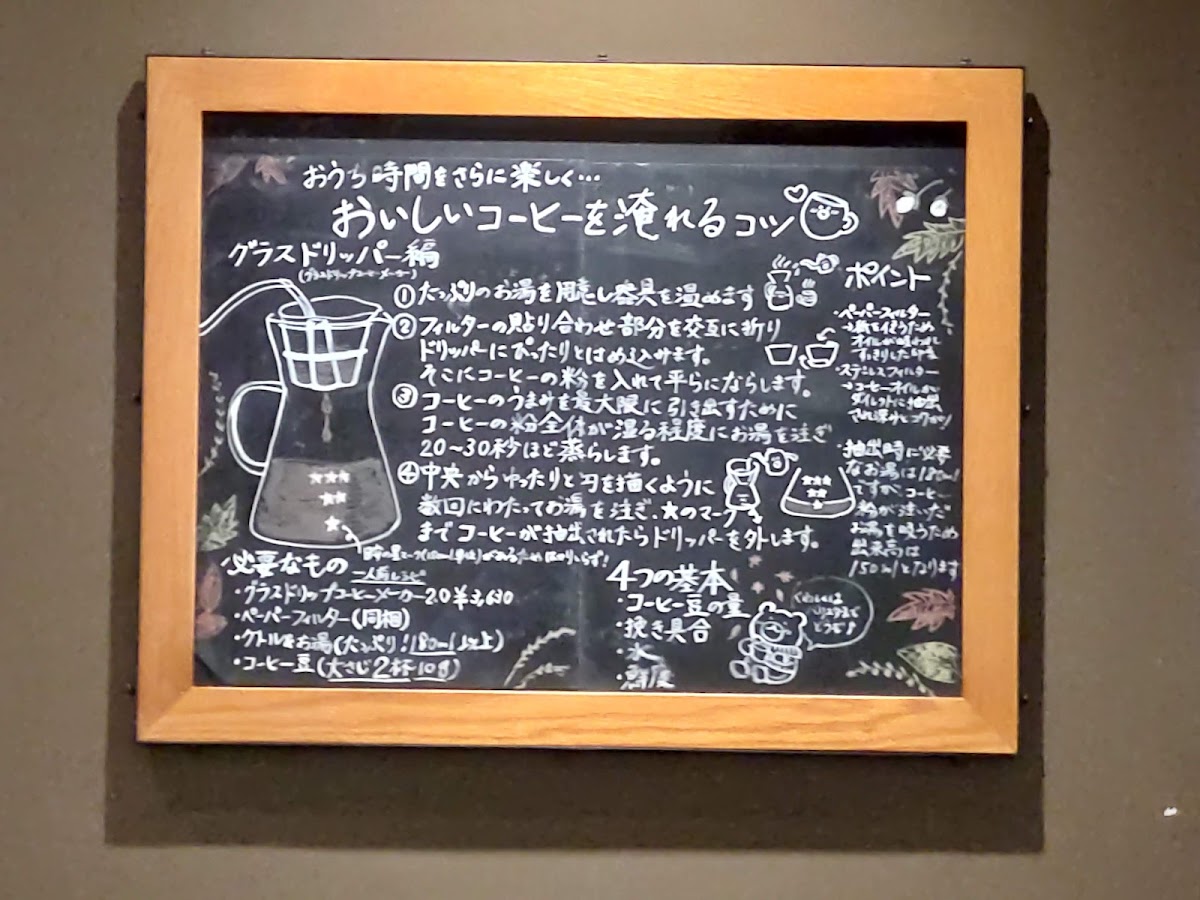 おうち時間をさらに楽しく…
おいしいコーヒーを淹れるコツ
グラスドリッパー編
(グラスドリップコーヒーメーカー)
① たっぷりのお湯を用意し器具を温めます
② フィルターの貼り合わせ部分を交互に折り
ドリッパーにぴったりとはめ込みます。
そこにコーヒーの粉を入れて平らにならします。
③ コーヒーのうまみを最大限に引き出すために
コーヒーの粉全体が湿る程度にお湯を注ぎ
20～30秒ほど蒸らします。
④ 中央からゆったりと円を描くように
数回にわたってお湯を注ぎ、★のマーク
までコーヒーが抽出されたらドリッパーを外します。
★★★
★★
★
★★★
★★
★
があるため はかりいらず!
必要なもの
一人前レシピ
・グラスドリップコーヒーメーカー2.0 ¥3,630
・ペーパーフィルター(同梱)
・ケトル&お湯(たっぷり!180ml以上)
・コーヒー豆(大さじ2杯・10g)
4つの基本
・コーヒー豆の量
・挽き具合
・水
・鮮度
くわしくは
バリスタまで
どうぞ♪
ポイント
・ペーパーフィルター
→紙を使うため
オイルが吸われ
すっきりした印象
・ステンレスフィルター
→コーヒーオイルが
ダイレクトに抽出
され深みとコクが!
・抽出時に必要
なお湯は180ml
ですが、コーヒー
粉が注いだ
お湯を吸うため
出来高は
150mlとなります